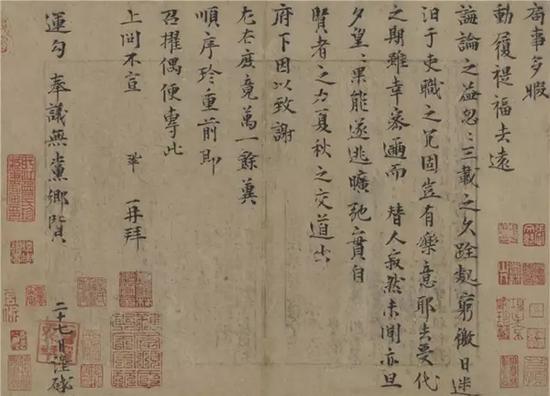 局事多暇
動履禔福去遠
誨論之益忽〻三載之久跧處窮徼日迷
汩于吏職之冗固豈有樂意耶去受代
之期雖幸密邇而替人寂然未聞亦旦
夕望〻果能遂逃曠弛實自
賢者之力夏秋之交道出
府下因以致謝
左右庶竟萬一餘冀
順序珍重前即
召擢偶便專此
上問不宣 鞏 再拜
運勾奉議無黨鄉賢 二十七日謹啓